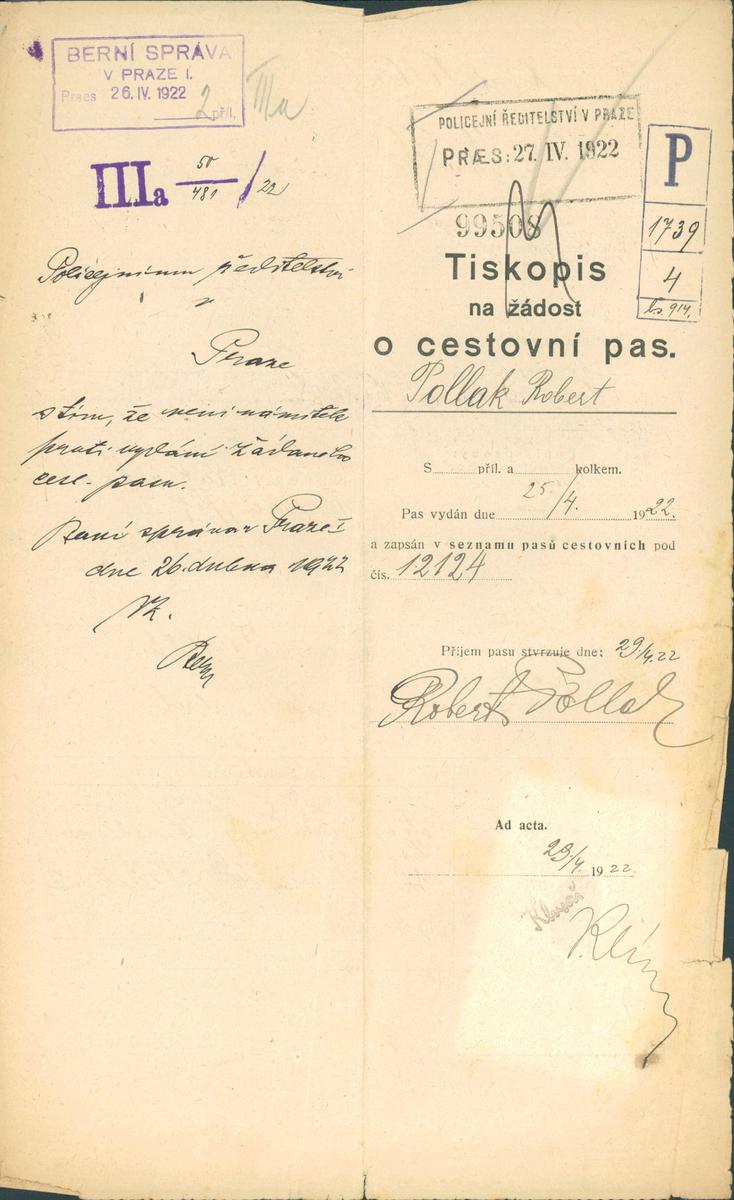 BERNÍ SPRÁVA
V PRAZE I.
Praes 26. IV. 1922
2 příl.
IIIa
IIIa 50/481 / 22
Policejnímu ředitelství
v
Praze
s tím, že není námitek
proti vydání žádaného
cest. pasu.
Berní správa v Praze I
dne 26. dubna 1922
POLICEJNÍ ŘEDITELSTVÍ V PRAZE
PRÆS: 27. IV. 1922
99508
P
1739
4
Tiskopis
na žádost
o cestovní pas.
Pollak Robert
S příl. a kolkem.
Pas vydán dne 25./4. 1922.
a zapsán v seznamu pasů cestovních pod
čís. 12124
Příjem pasu stvrzuje dne: 29/4. 22
Robert Pollak
Ad acta.
29./4. 1922.